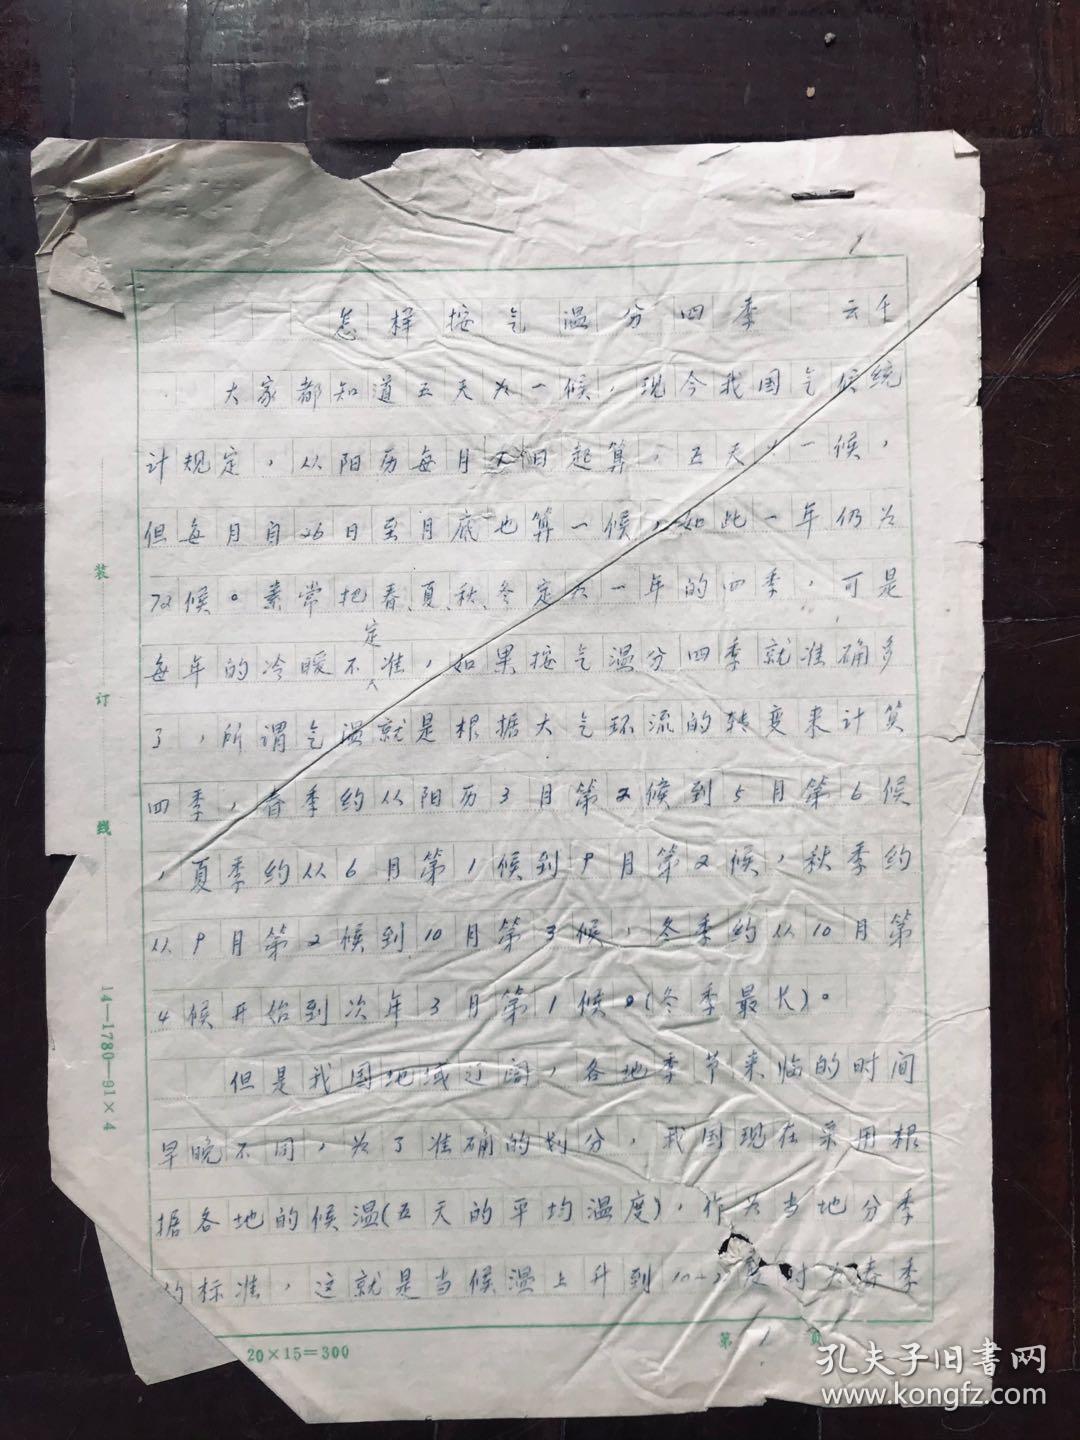 1
怎样按气温分四季 云千
大家都知道五天为一候，现今我国气候统
计规定，从阳历每月 日起算，五天为一候，
但每月自26日至月底也算一候，如此一年仍为
72候。素常把春、夏、秋、冬定为一年的四季，可是
定
每年的冷暖不准，如果按气温分四季就准确多
了，所谓气温就是根据大气环流的转变来计算
四季，春季约从阳历3月第2候到5月第6候
，夏季约从6月第1候到9月第2候，秋季约
从9月第2候到10月第3候，冬季约从10月第
4候开始到次年3月第1候。(冬季最长)。
但是我国地域辽阔，各地季节来临的时间
早晚不同，为了准确的划分，我国现在采用根
据各地的候温(五天的平均温度)，作为当地分季
的标准，这就是当候温上升到10 度时为春季
装
订
线
14—1780—91×4
20×15=300
第 1 页
孔夫子旧書网
www.kongfz.com